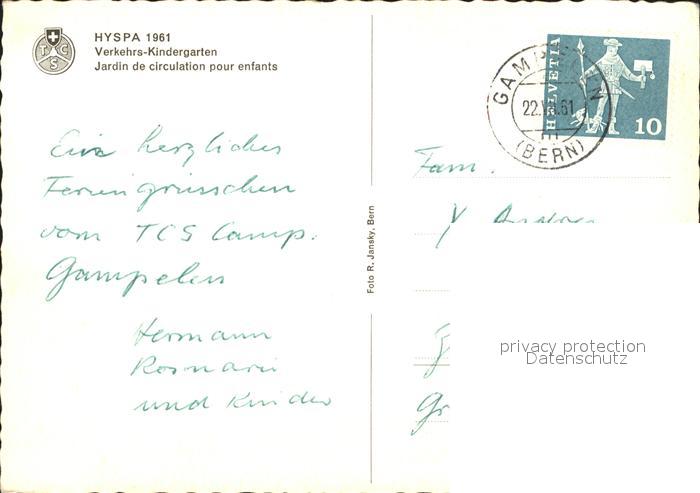 HYSPA 1961
Verkehrs-Kindergarten
Jardin de circulation pour enfants
TCS
HELVETIA
10
GAMPELEN
22. 61
(BERN)
Ein herzliches
Feriengrüsschen
vom TCS Camp.
Gampelen
Hermann
Rosmarie
und Kinder
Foto R. Jansky, Bern
Fam.
Gr
privacy protection
Datenschutz